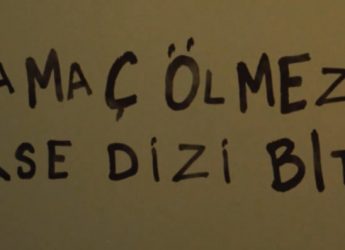 AMAÇ ÖLMEZ
RSE DİZİ BİT